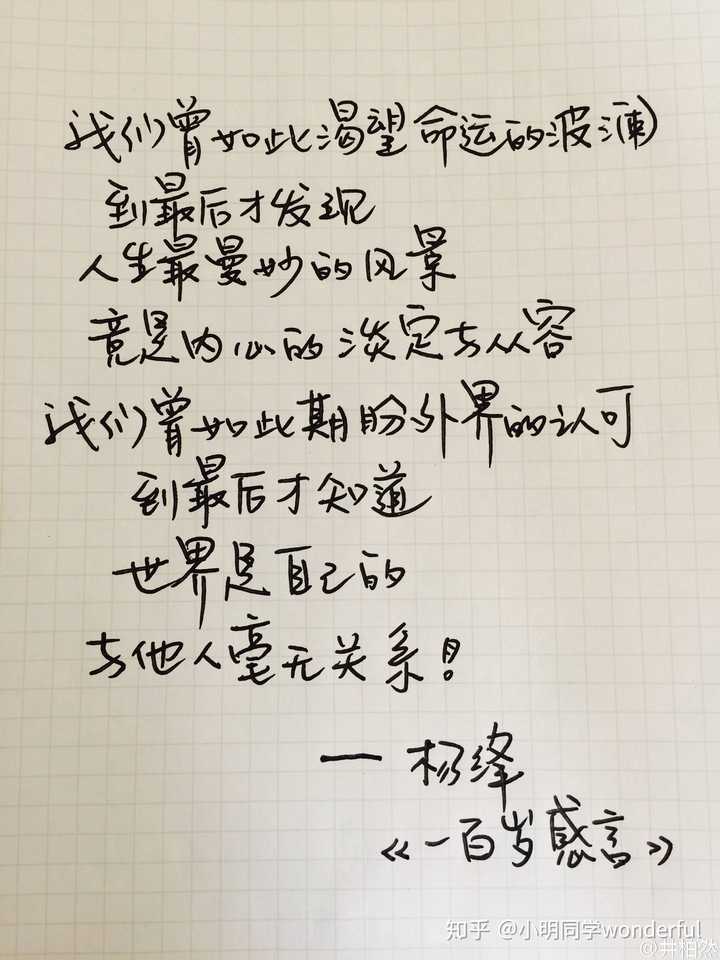 我们曾如此渴望命运的波澜
到最后才发现
人生最曼妙的风景
竟是内心的淡定与从容
我们曾如此期盼外界的认可
到最后才知道
世界是自己的
与他人毫无关系！
— 杨绛
《一百岁感言》
知乎 @小明同学wonderful
@井柏然